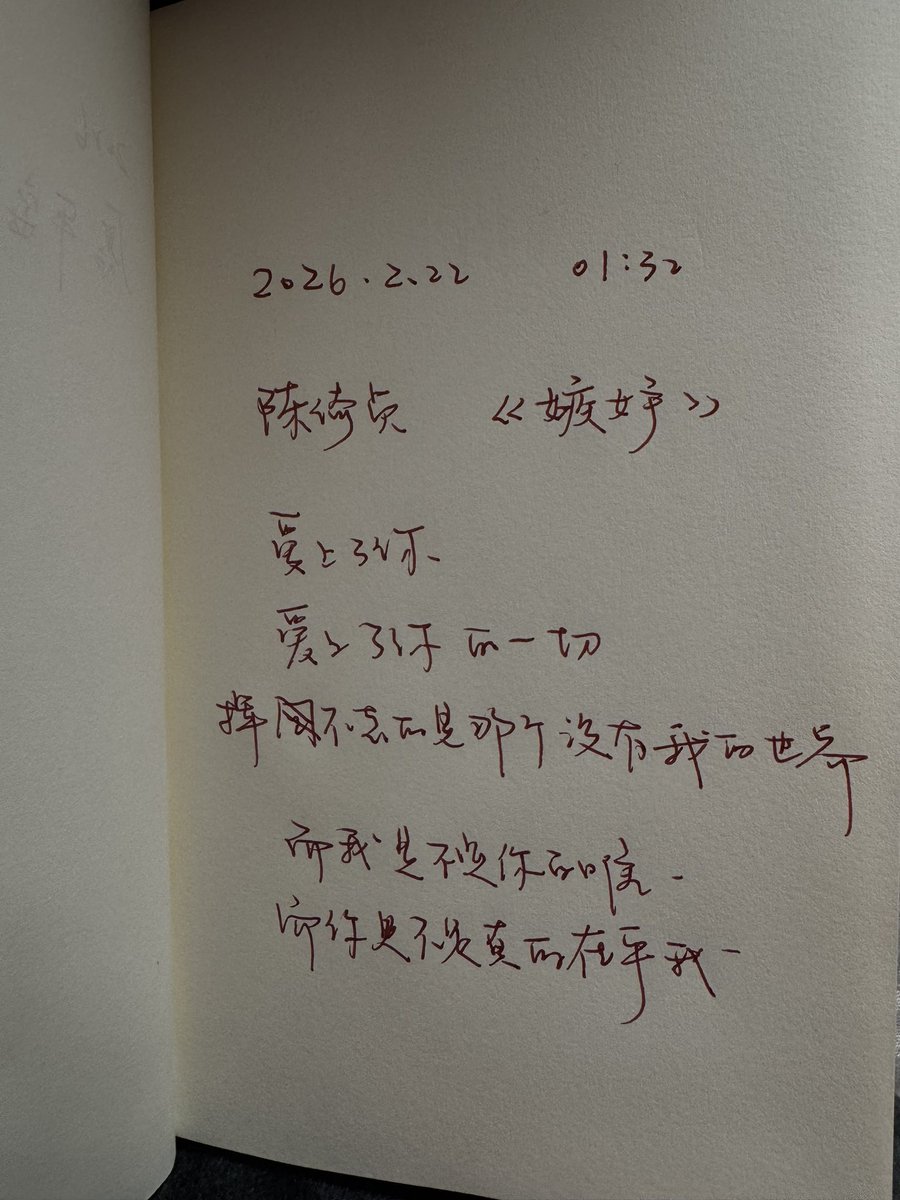 2026.2.22 01:32
陈绮贞 《嫉妒》
爱上了你
爱上了你的一切
挥不去的是那个没有我的世界
而我是不是你的唯一
而你是不是真的在乎我